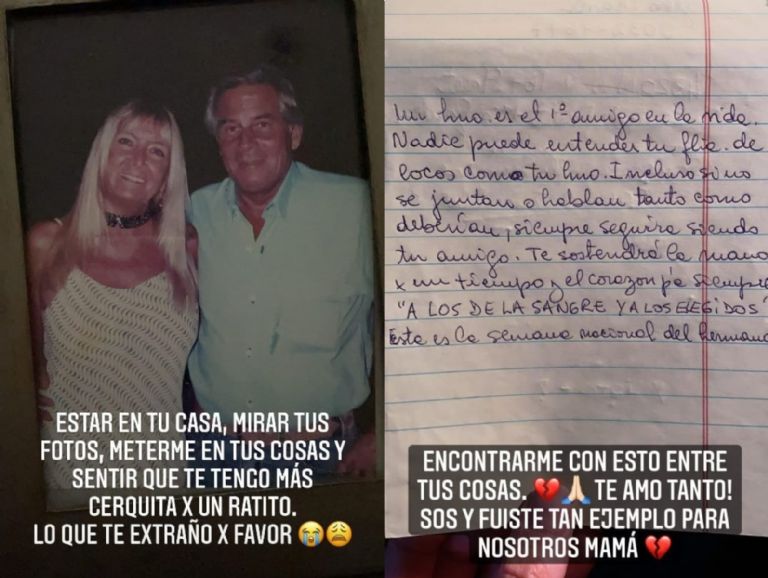 ESTAR EN TU CASA, MIRAR TUS
FOTOS, METERME EN TUS COSAS Y
SENTIR QUE TE TENGO MÁS
CERQUITA X UN RATITO.
LO QUE TE EXTRAÑO X FAVOR 😭😩
Un hno es el 1º amigo en la vida.
Nadie puede entender tu flia. de
locos como tu hno. Incluso si no
se juntan o hablan tanto como
deberían, siempre seguirá siendo
tu amigo. Te sostendrá la mano
x un tiempo y el corazón pa siempre
"A LOS DE LA SANGRE Y A LOS ELEGIDOS"
Esta es la semana nacional del hermano
ENCONTRARME CON ESTO ENTRE
TUS COSAS. 💔🙏🏻 TE AMO TANTO!
SOS Y FUISTE TAN EJEMPLO PARA
NOSOTROS MAMÁ 💔